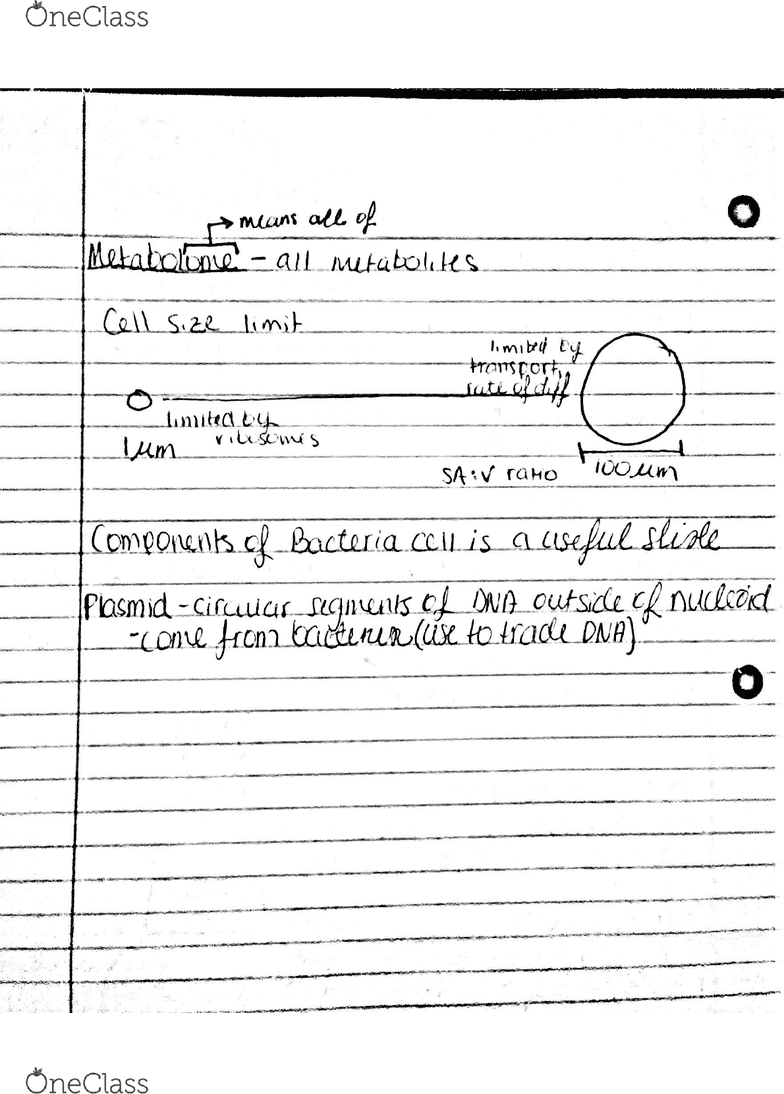 OneClass
means all of
Metabolome - all metabolites
Cell size limit
limited by
transport,
rate of diff
limited by
ribosomes
1 µm
SA:V ratio
100 µm
Components of Bacteria cell is a useful slide
Plasmid - circular segments of DNA outside of nucleoid
- come from bacteria (use to trade DNA)
OneClass